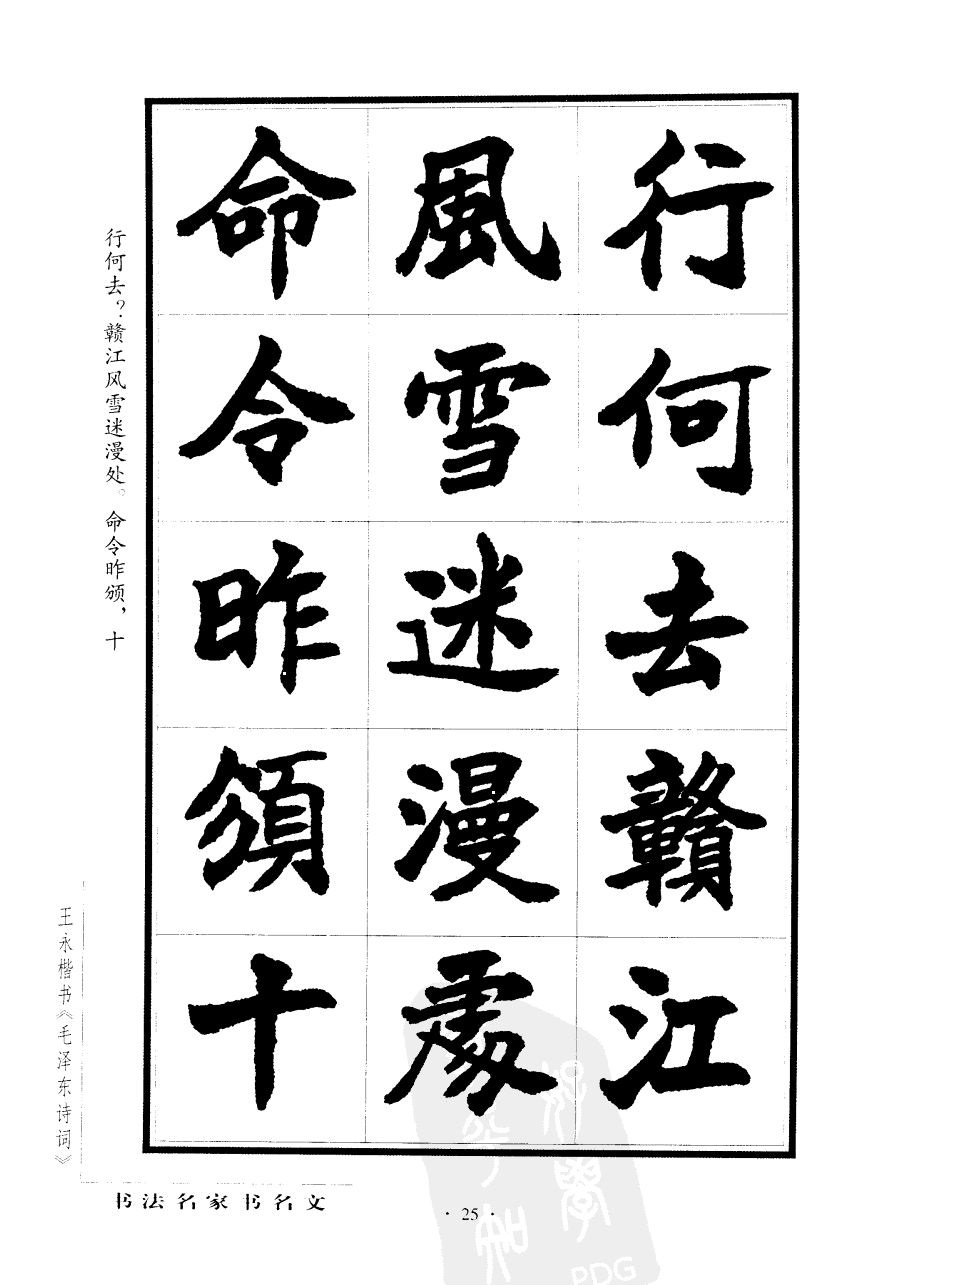 行何去贛江
風雪迷漫處
命令昨頒十
行何去?赣江风雪迷漫处。命令昨颁,十
王永楷书《毛泽东诗词》
书法名家书名文
· 25 ·
PDG